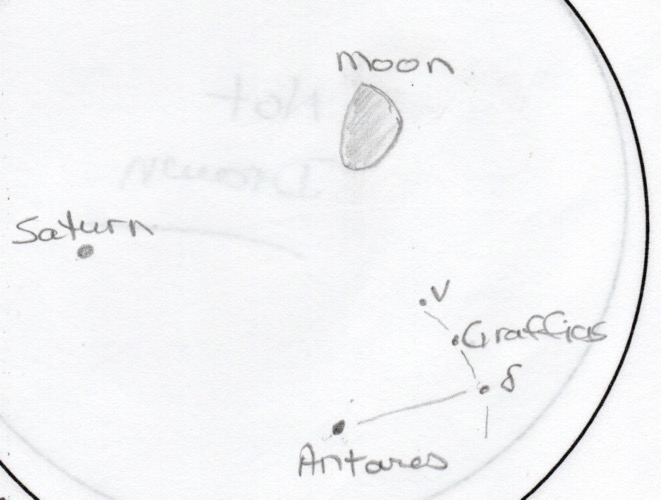 Moon
Saturn
ν
Graffias
δ
Antares